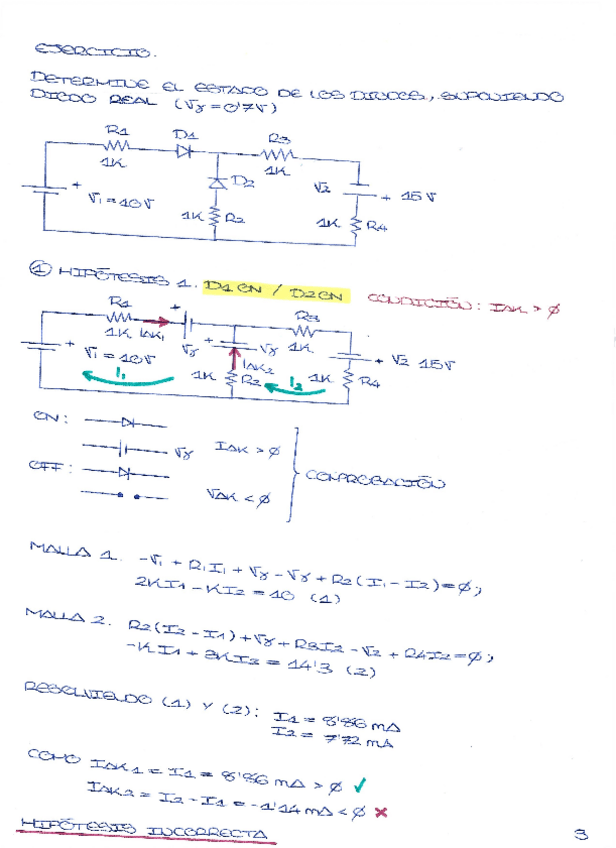 EJERCICIO.
DETERMINE EL ESTADO DE LOS DIODOS, SUPONIENDO
DIODO REAL (Vγ=0'7V)
R1 D1 R3
1K 1K
D2 V2 + 15V
+ V1=10V 1K R2 1K R4
① HIPÓTESIS 1. D1 ON / D2 ON CONDICIÓN: IAK > ∅
R1 + R3
1K IAK1 Vγ + Vγ 1K
+ V1=10V IAK2 + V2 15V
I1 1K R2 I2 1K R4
ON:
Vγ IAK > ∅
OFF: COMPROBACIÓN
VAK < ∅
MALLA 1. -V1 + R1I1 + Vγ - Vγ + R2(I1 - I2)=∅;
2KI1 - KI2 = 10 (1)
MALLA 2. R2(I2 - I1) + Vγ + R3I2 - V2 + R4I2=∅;
-KI1 + 3KI2 = 14'3 (2)
RESOLVIENDO (1) Y (2): I1 = 8'86 mA
I2 = 7'72 mA
COMO IAK1 = I1 = 8'86 mA > ∅ ✓
IAK2 = I2 - I1 = -1'14 mA < ∅ ✗
HIPÓTESIS INCORRECTA
3